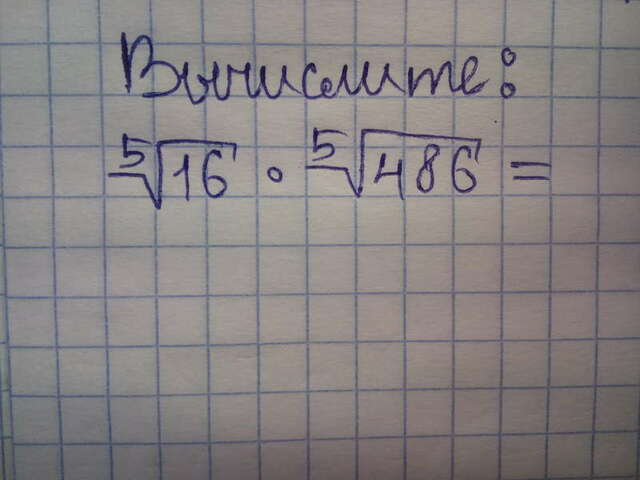 Вычислите:
⁵√16 · ⁵√486 =